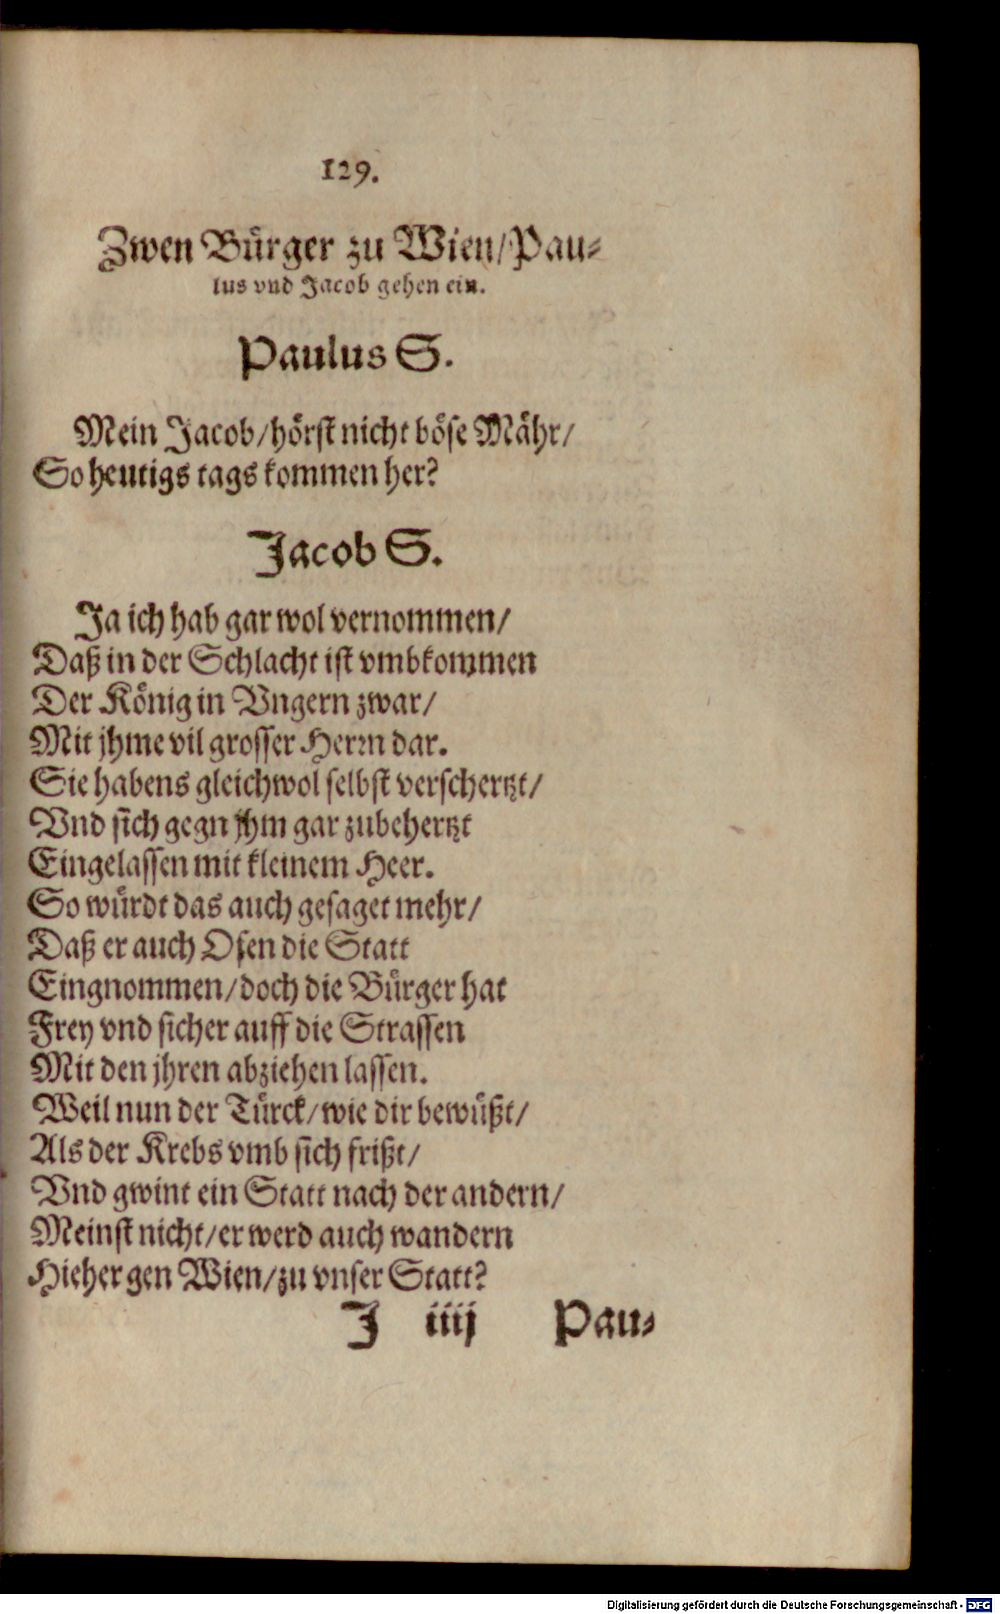 129.
Zwen Bürger zu Wien/Pau-
lus vnd Jacob gehen ein.
Paulus S.
Mein Jacob/hörst nicht böse Mähr/
So heutigs tags kommen her?
Jacob S.
Ja ich hab gar wol vernommen/
Daß in der Schlacht ist vmbkommen
Der König in Vngern zwar/
Mit jhme vil grosser Herrn dar.
Sie habens gleichwol selbst verschertzt/
Vnd sich gegn jhm gar zubehertzt
Eingelassen mit kleinem Heer.
So würdt das auch gesaget mehr/
Daß er auch Ofen die Statt
Eingnommen/doch die Bürger hat
Frey vnd sicher auff die Strassen
Mit den jhren abziehen lassen.
Weil nun der Türck/wie dir bewüßt/
Als der Krebs vmb sich frißt/
Vnd gwint ein Statt nach der andern/
Meinst nicht/er werd auch wandern
Hieher gen Wien/zu vnser Statt?
J iiij Pau-
Digitalisierung gefördert durch die Deutsche Forschungsgemeinschaft - DFG